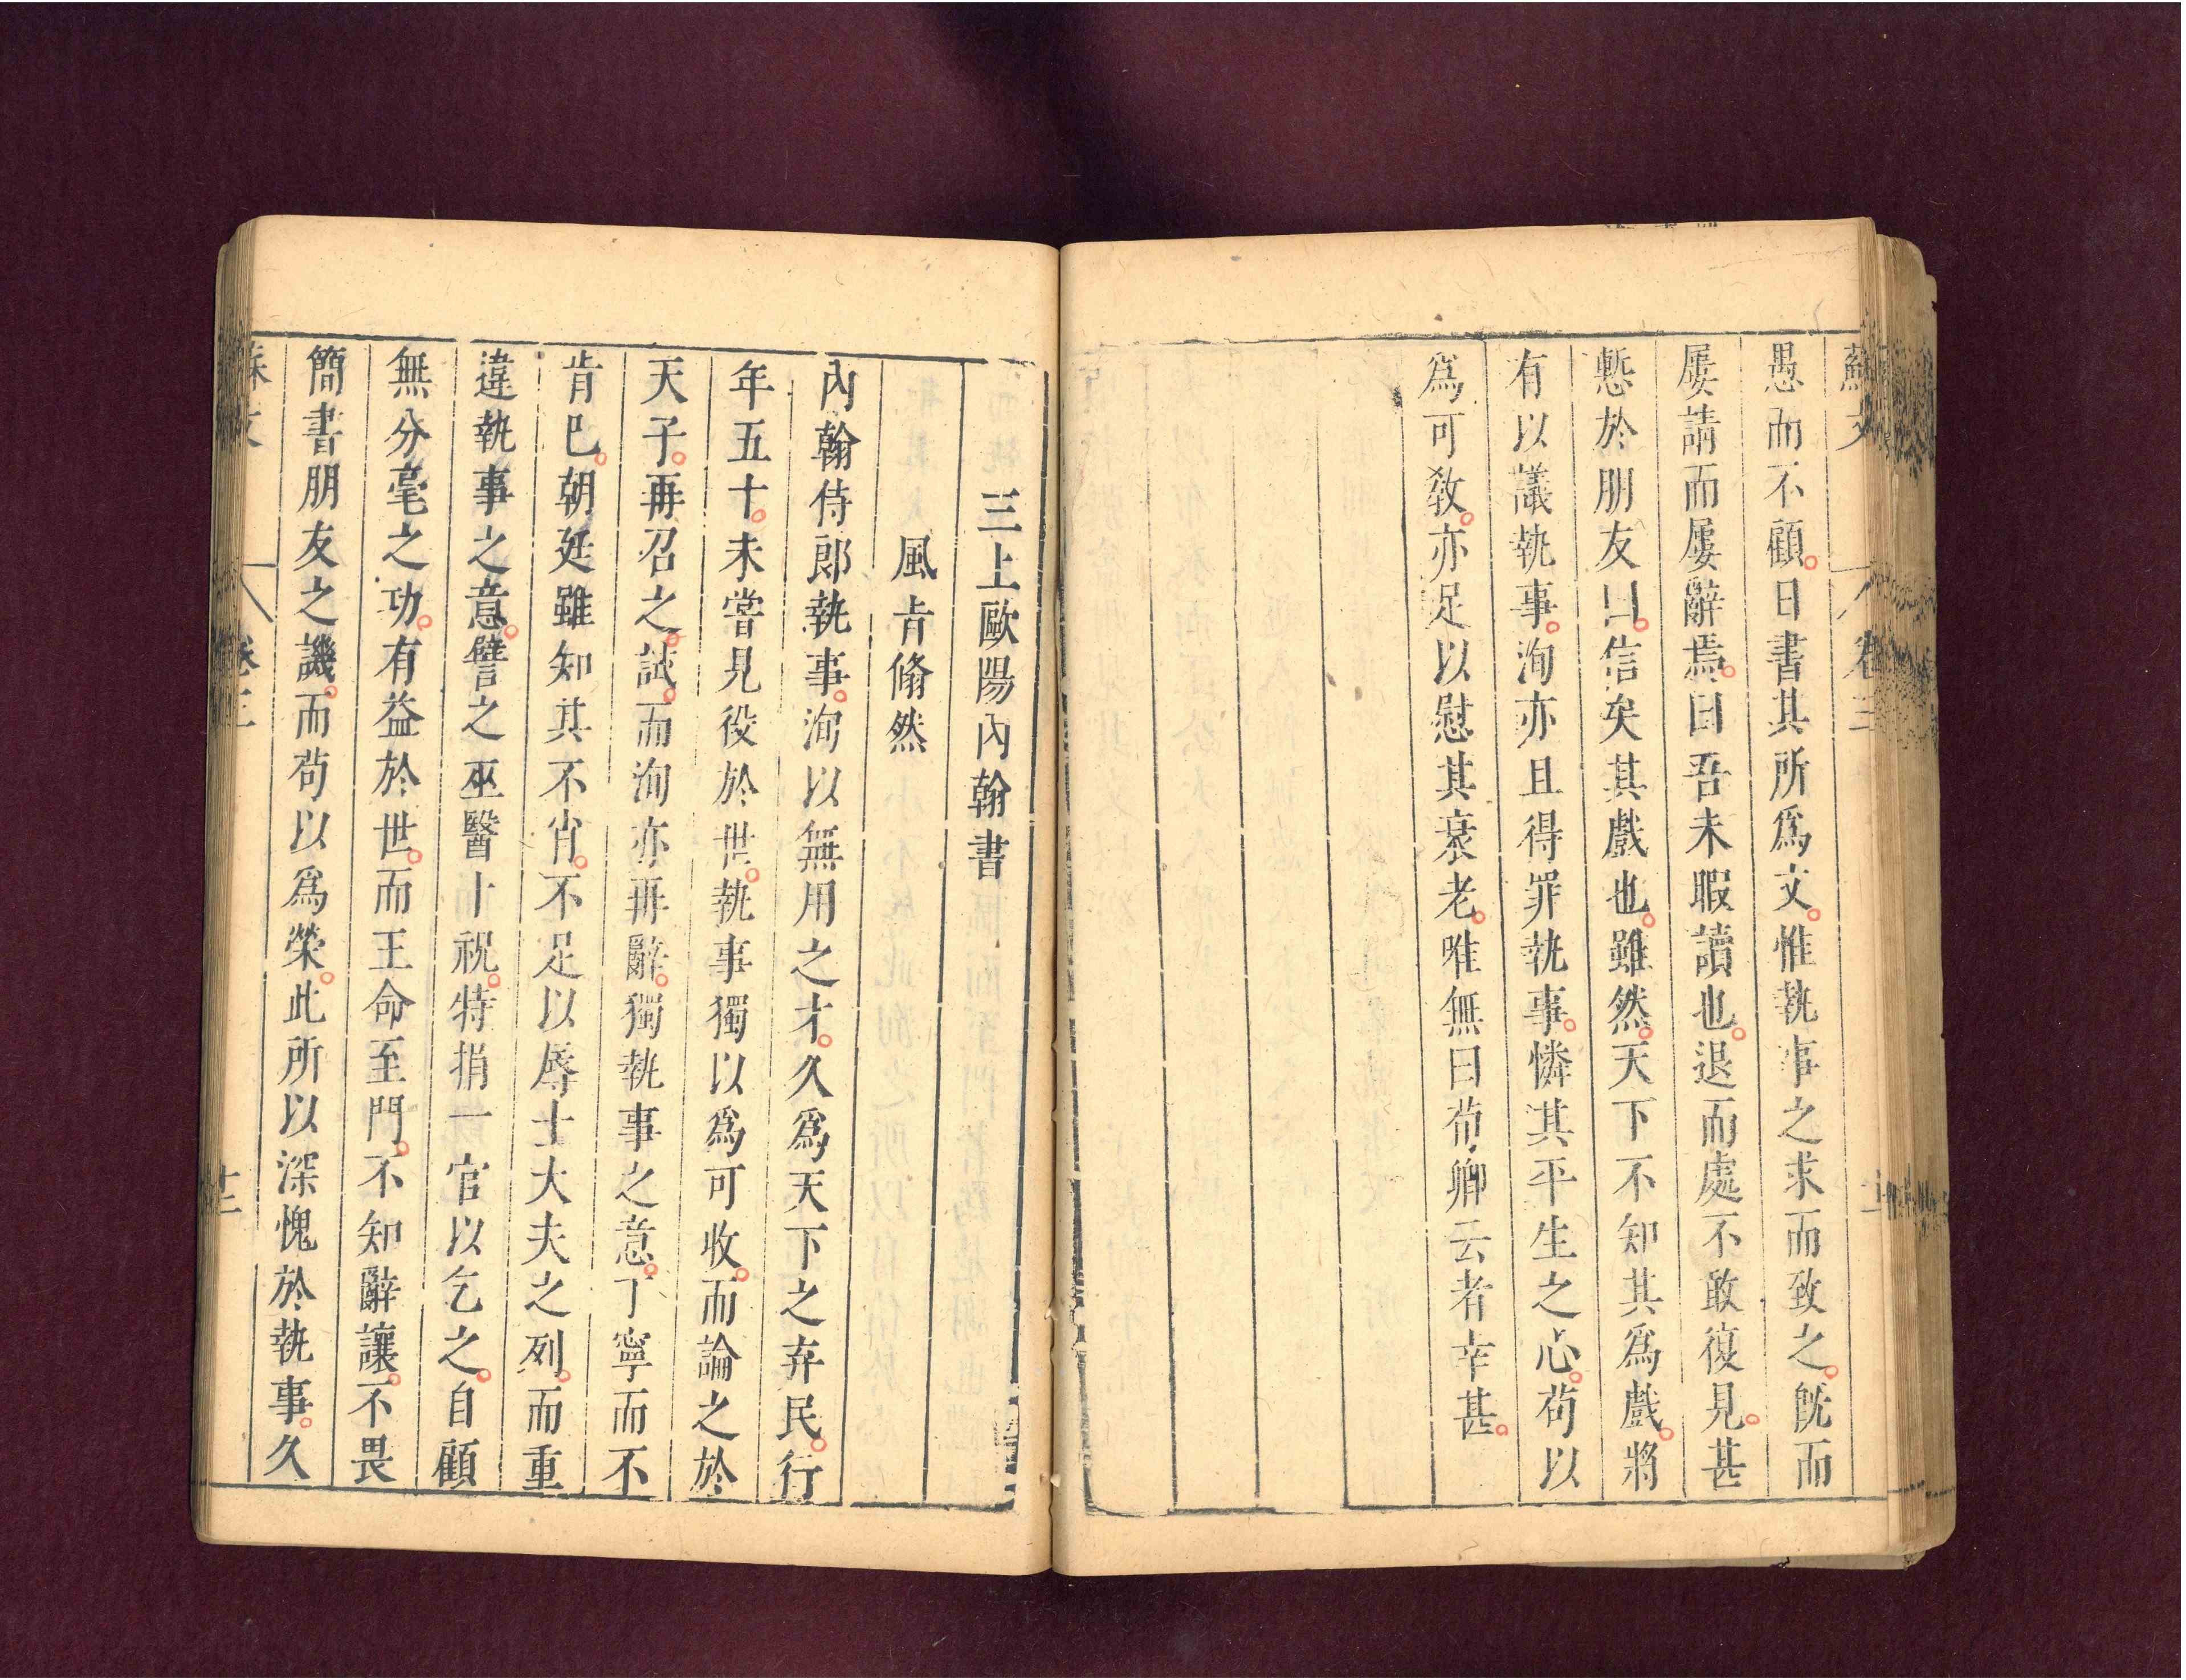 蘇文 卷三
愚而不顧。日書其所爲文。惟執事之求而致之。旣而
屢請而屢辭焉。曰吾未暇讀也。退而處不敢復見。甚
慙於朋友曰。信矣其戲也。雖然。天下不知其爲戲。將
有以議執事。洵亦且得罪執事。憐其平生之心。苟以
爲可敎。亦足以慰其衰老。唯無曰荀卿云者幸甚。
三上歐陽內翰書
風㫖翛然
內翰侍郎執事。洵以無用之才。久爲天下之弃民。行
年五十。未嘗見役於世。執事獨以爲可收。而論之於
天子。再召之。試。而洵亦再辭。獨執事之意。丁寧而不
肯已。朝廷雖知其不肖。不足以辱士大夫之列。而重
違執事之意。譬之巫醫卜祝。特捐一官以乞之。自顧
無分毫之功。有益於世。而王命至門。不知辭讓。不畏
簡書朋友之譏。而苟以爲榮。此所以深愧於執事。久
蘇文 卷三 十二